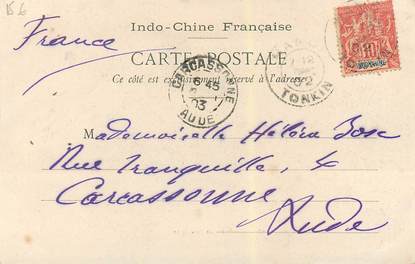 Indo-Chine Française
France
CARTE POSTALE
Ce côté est exclusivement réservé à l'adresse
CARCASSONNE
6 45
03
AUDE
TONKIN
10
Mademoiselle Héléna Bosc
Rue Tranquille, 4
Carcassonne
Aude